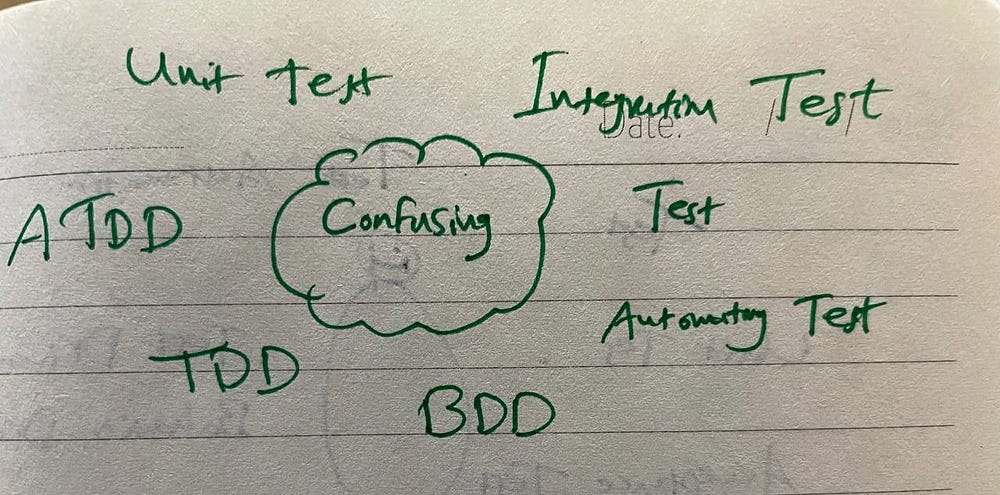 Unit Test
Integration Test
Date:
ATDD
Confusing
Test
Automating Test
TDD
BDD